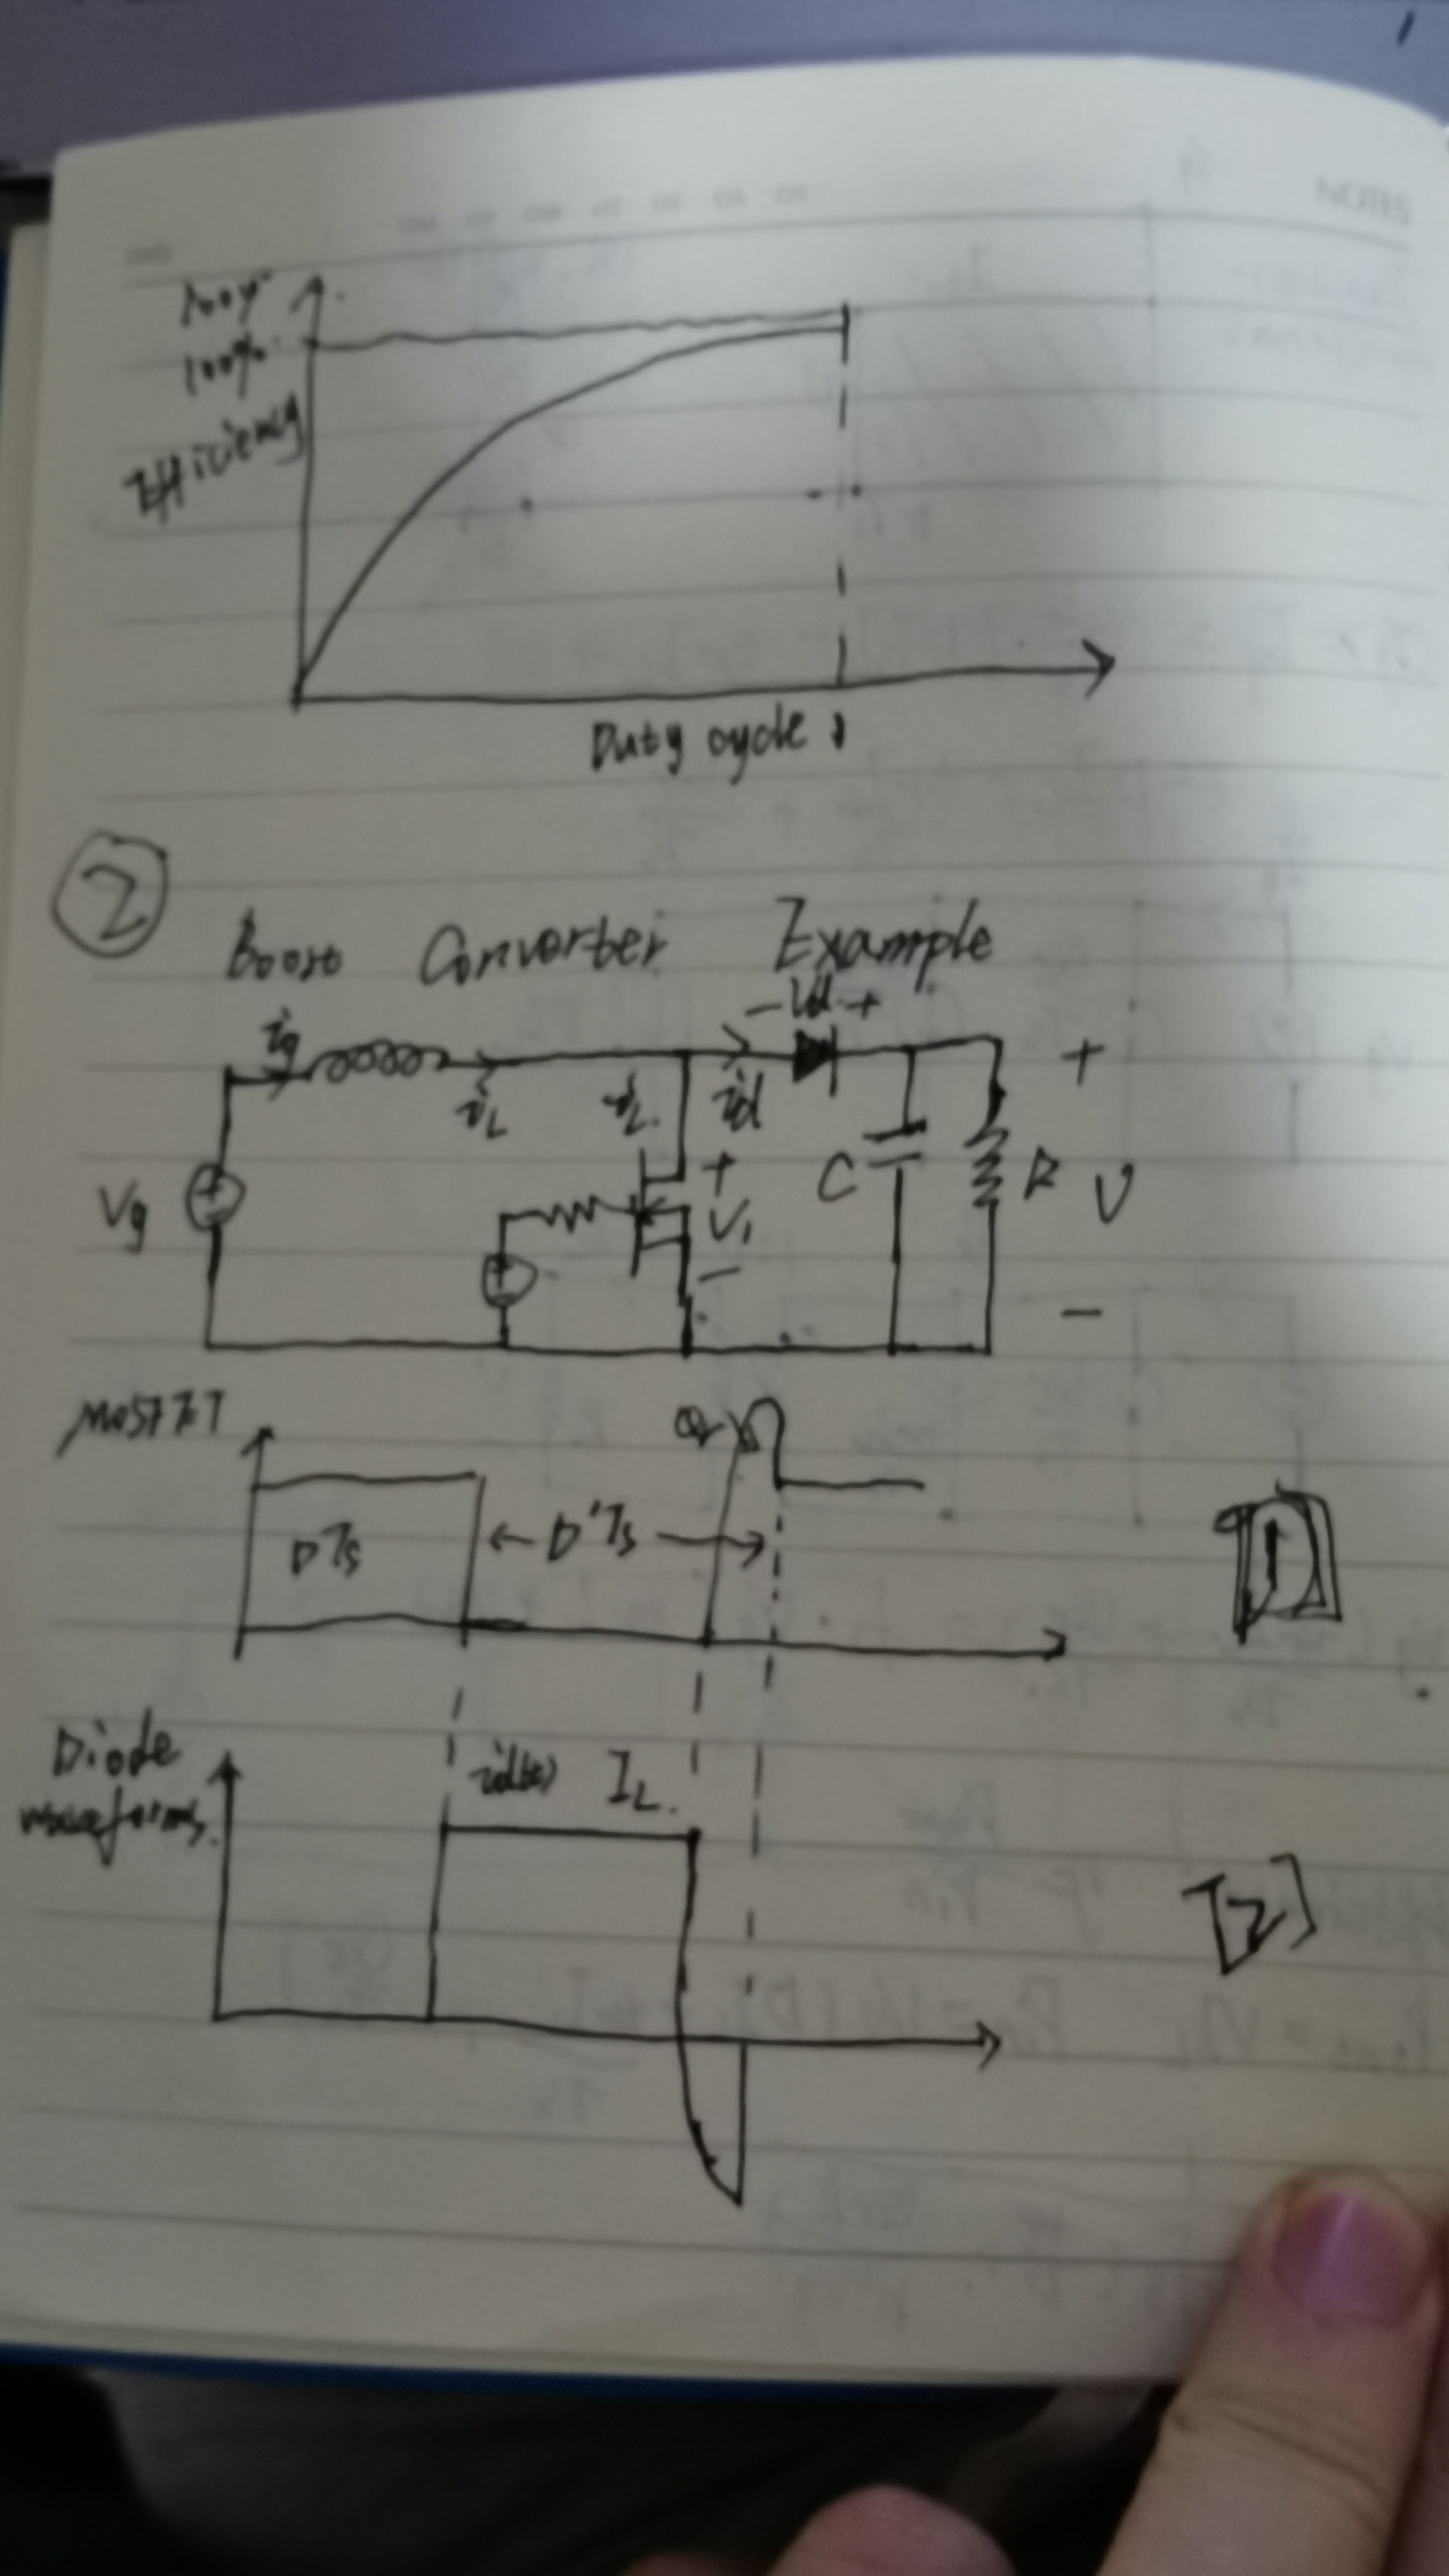 NOTES
100%
100%
Efficiency
Duty cycle 1
2
Boost Converter Example
- Vd +
ig
iL
iL
id
+
Vg
+
V1
-
C
R
V
+
-
MOSFET
Qr
DTs
D'Ts
Diode
waveforms.
id(t) IL.
[2]